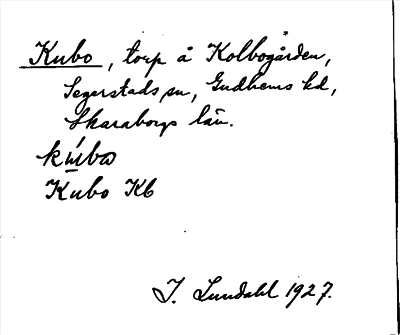 Kubo, torp å Kolbogården,
Segerstads sn, Gudhems hd,
Skaraborgs län.
kúbo
Kubo Kb
I. Lundahl 1927.